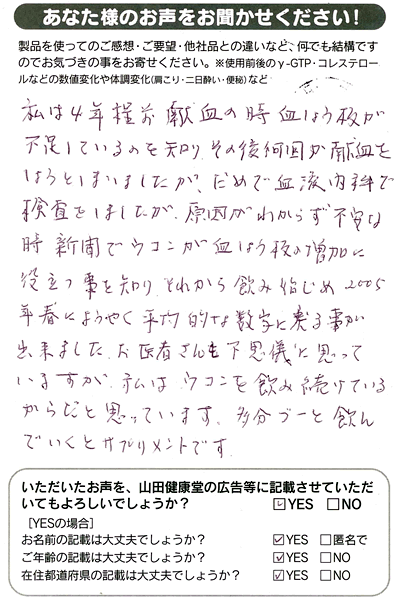 あなた様のお声をお聞かせください！
製品を使ってのご感想・ご要望・他社品との違いなど、何でも結構です
のでお気づきの事をお寄せください。※使用前後のγ-GTP・コレステロー
ルなどの数値変化や体調変化(肩こり・二日酔い・便秘)など
私は4年程前献血の時血しょう板が
不足しているのを知り、その後何回か献血を
しようとしましたが、だめで血液内科で
検査をしましたが、原因がわからず不安な
時 新聞でウコンが血しょう板の増加に
役立つ事を知り それから飲み始じめ 2005
年春にようやく平均的な数字に戻る事が
出来ました。お医者さんも不思儀に思って
いますが、私はウコンを飲み続けている
からだと思っています。多分ずーと飲ん
でいくとサプリメントです。
いただいたお声を、山田健康堂の広告等に記載させていただ
いてもよろしいでしょうか？ YES NO
［YESの場合］
お名前の記載は大丈夫でしょうか？ YES 匿名で
ご年齢の記載は大丈夫でしょうか？ YES NO
在住都道府県の記載は大丈夫でしょうか？ YES NO